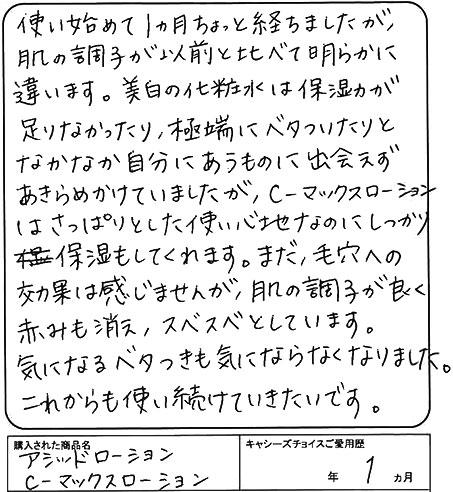 使い始めて1ヵ月ちょっと経ちましたが、
肌の調子が以前と比べて明らかに
違います。美白の化粧水は保湿力が
足りなかったり、極端にベタついたりと
なかなか自分にあうものに出会えず
あきらめかけていましたが、C-マックスローション
はさっぱりとした使い心地なのにしっかり
保湿もしてくれます。まだ、毛穴への
効果は感じませんが、肌の調子が良く
赤みも消え、スベスベとしています。
気になるベタつきも気にならなくなりました。
これからも使い続けていきたいです。
購入された商品名
アシッドローション
C-マックスローション
キャシーズチョイスご愛用歴
年 1 ヵ月